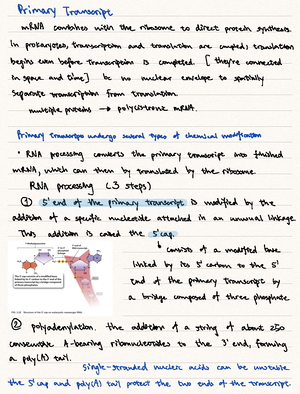 Primary Transcript
mRNA combines with the ribosome to direct protein synthesis
In prokaryotes, transcription and translation are coupled; translation
begins even before transcription is completed. [they're connected
in space and time] bc no nuclear envelope to spatially
separate transcription from translation.
multiple proteins → polycistronic mRNA.
Primary transcripts undergo several types of chemical modification
• RNA processing converts the primary transcript into finished
mRNA, which can then by translated by the ribosome.
RNA processing (3 steps)
① 5' end of the primary transcript is modified by the
addition of a specific nucleotide attached in an unusual linkage.
This addition is called the 5' cap.
↳ consists of a modified base
linked by its 5' carbon to the 5'
end of the primary transcript by
a bridge composed of three phosphate
② polyadenylation, the addition of a string of about 250
consecutive A-bearing ribonucleotides to the 3' end, forming
a poly(A) tail.
Single-stranded nucleic acids can be unstable
the 5' cap and poly(A) tail protect the two ends of the transcript